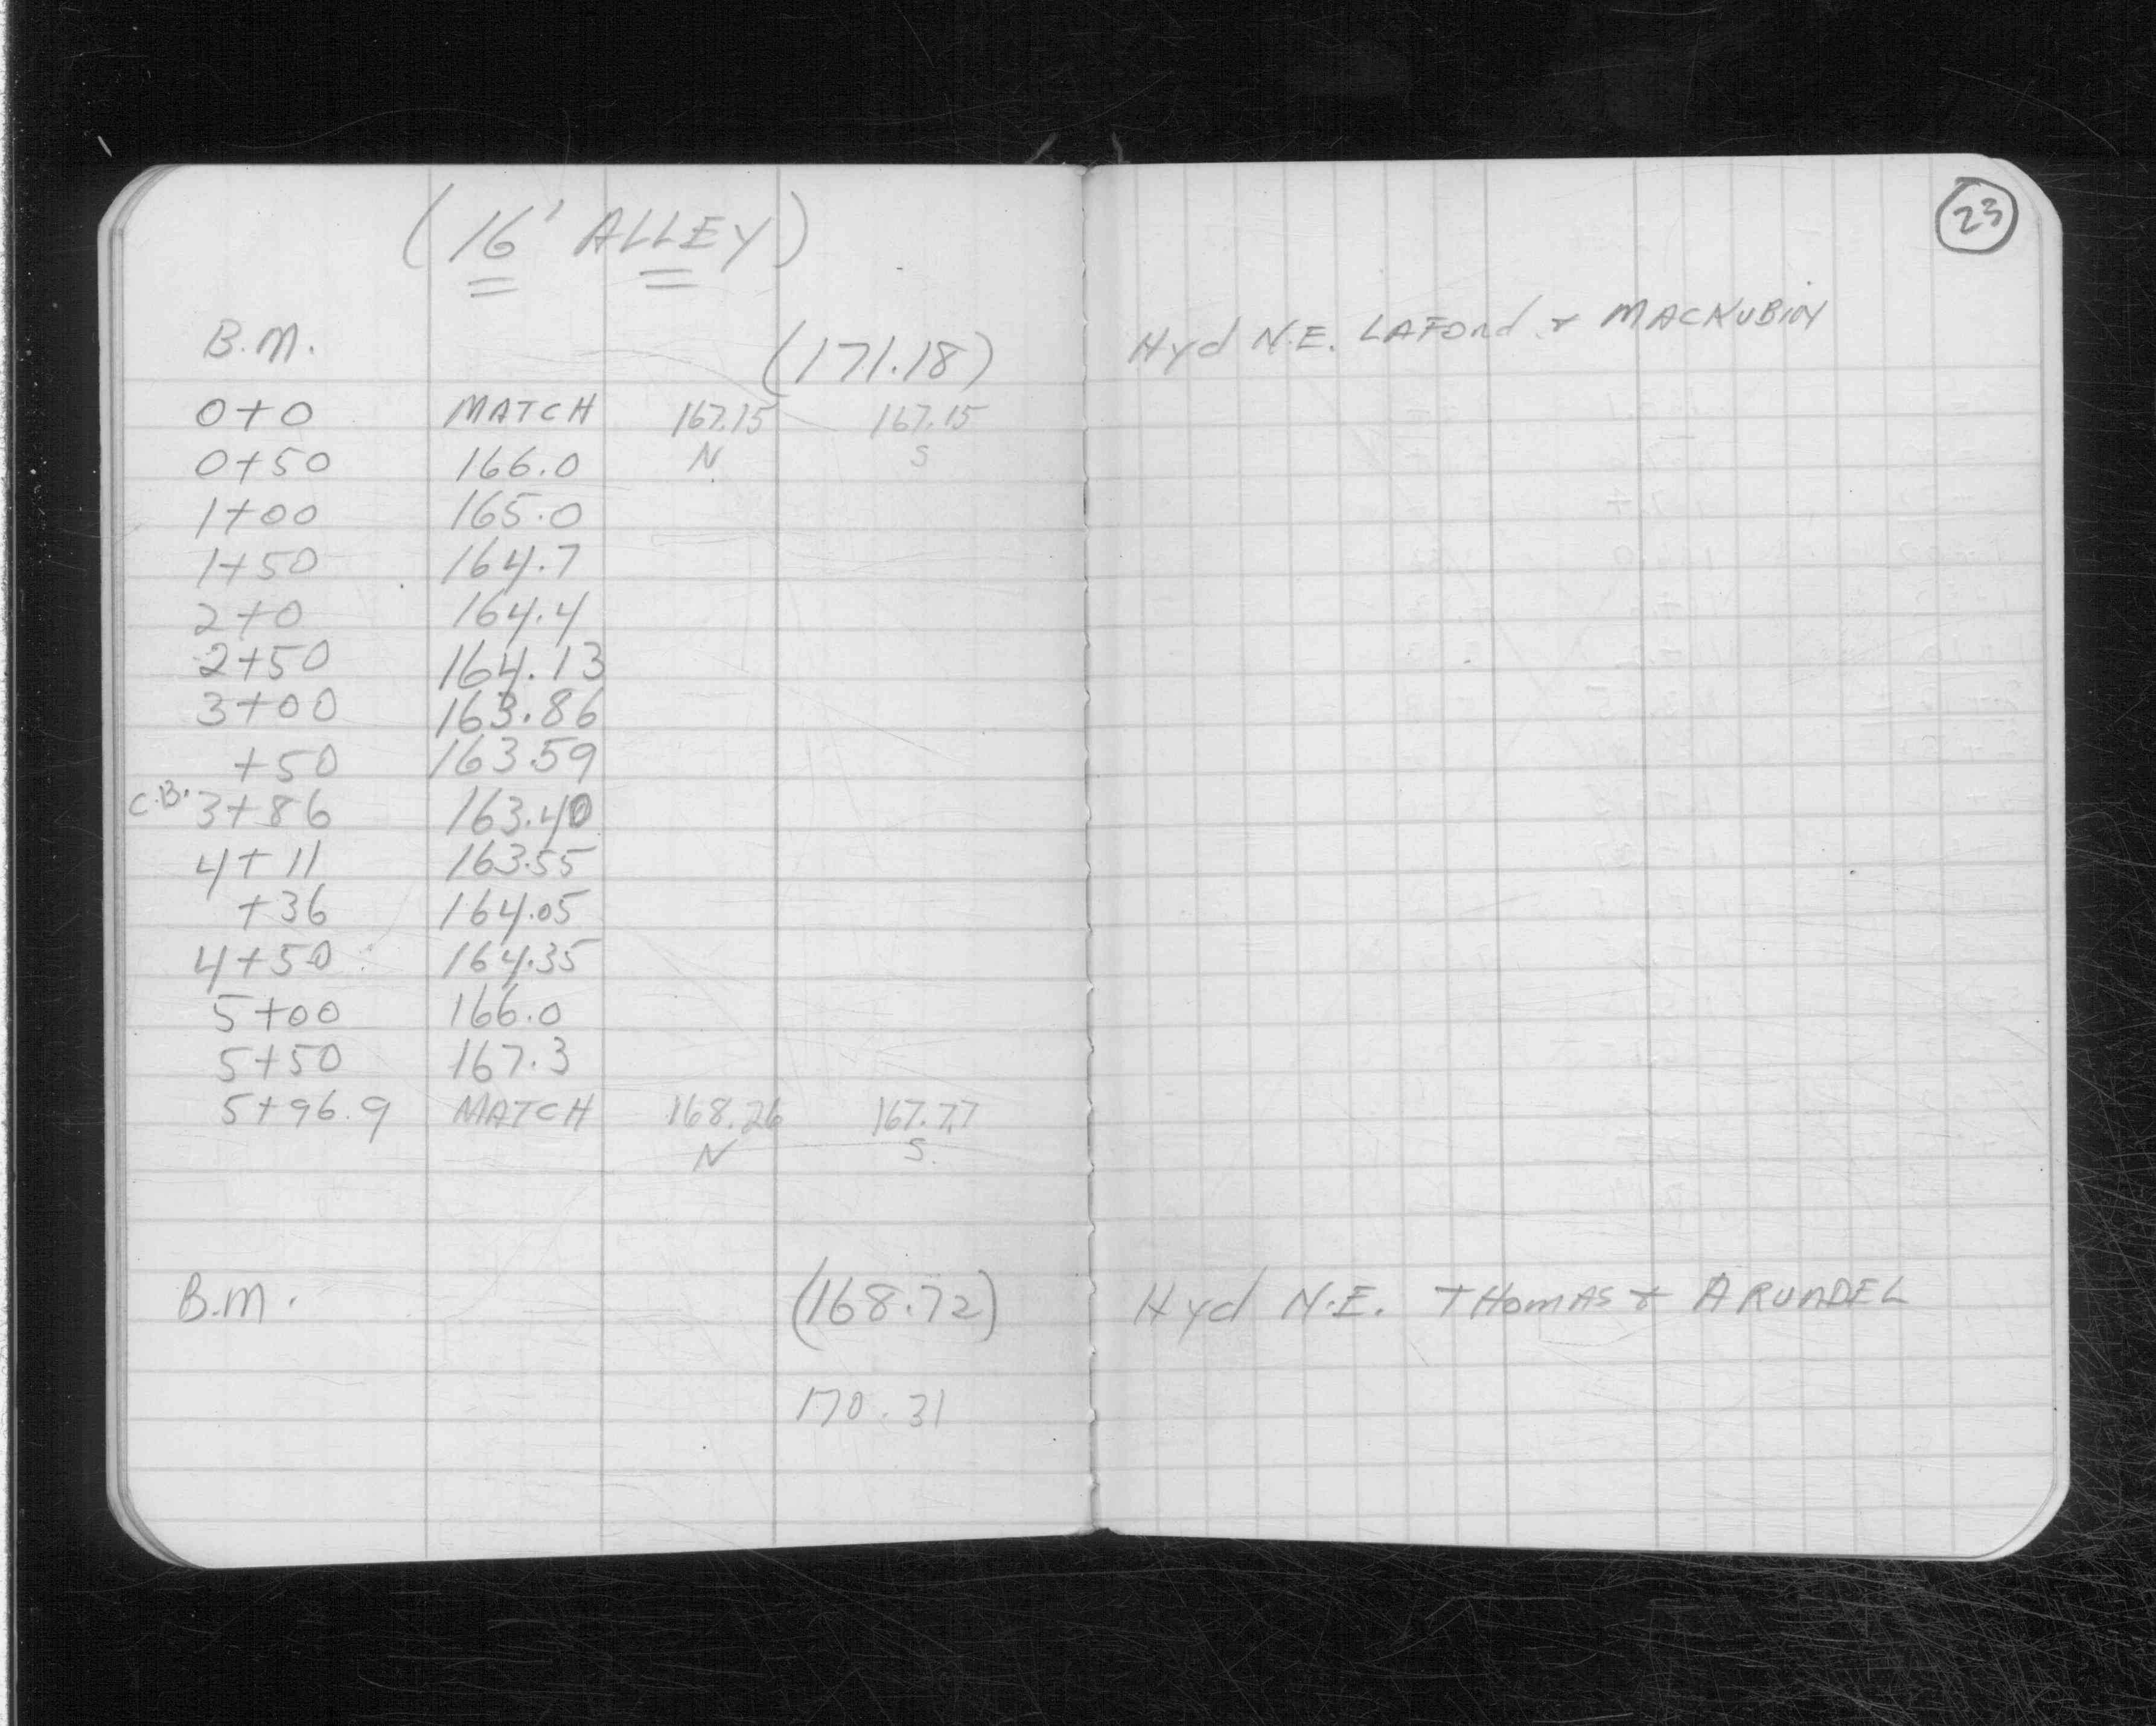 23
(16' ALLEY)
B.M. (171.18) Hyd N.E. LAFOnd & MACKUBIN
0+0 MATCH 167.15 167.15
0+50 166.0 N S
1+00 165.0
1+50 164.7
2+0 164.4
2+50 164.13
3+00 163.86
+50 163.59
C.B. 3+86 163.40
4+11 163.55
+36 164.05
4+50 164.35
5+00 166.0
5+50 167.3
5+96.9 MATCH 168.26 167.77
N S.
B.M. (168.72) Hyd N.E. THOMAS & ARUNDEL
170.31